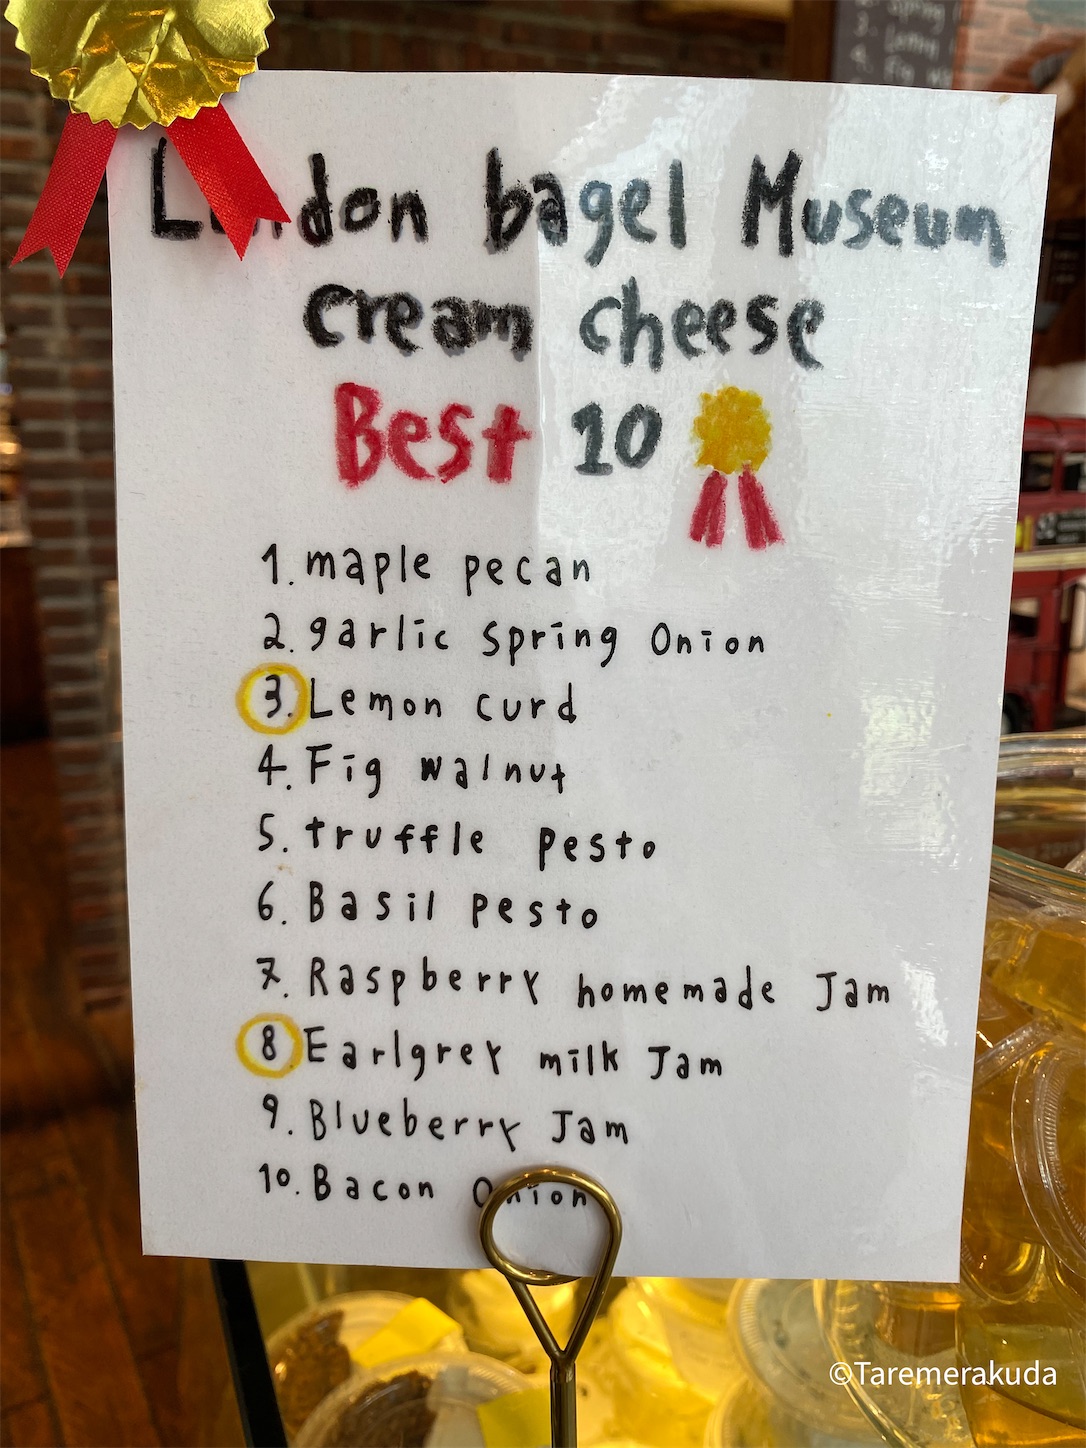 London bagel Museum
cream cheese
Best 10
1. maple pecan
2. garlic spring Onion
3. Lemon curd
4. Fig walnut
5. truffle pesto
6. Basil pesto
7. Raspberry homemade Jam
8 Earlgrey milk Jam
9. Blueberry Jam
10. Bacon Onion
©Taremerakuda